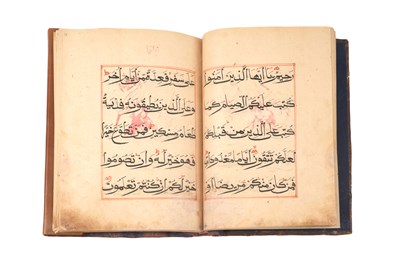 رحيم يا أيها الذين آمنوا
كتب عليكم الصيام كما
كتب على الذين من قبلكم
لعلكم تتقون أياما معدودات
فمن كان منكم مريضا أو
على سفر فعدة من أيام أخر
وعلى الذين يطيقونه فدية
طعام مسكين فمن تطوع خيرا
فهو خير له وأن تصوموا
خير لكم إن كنتم تعلمون